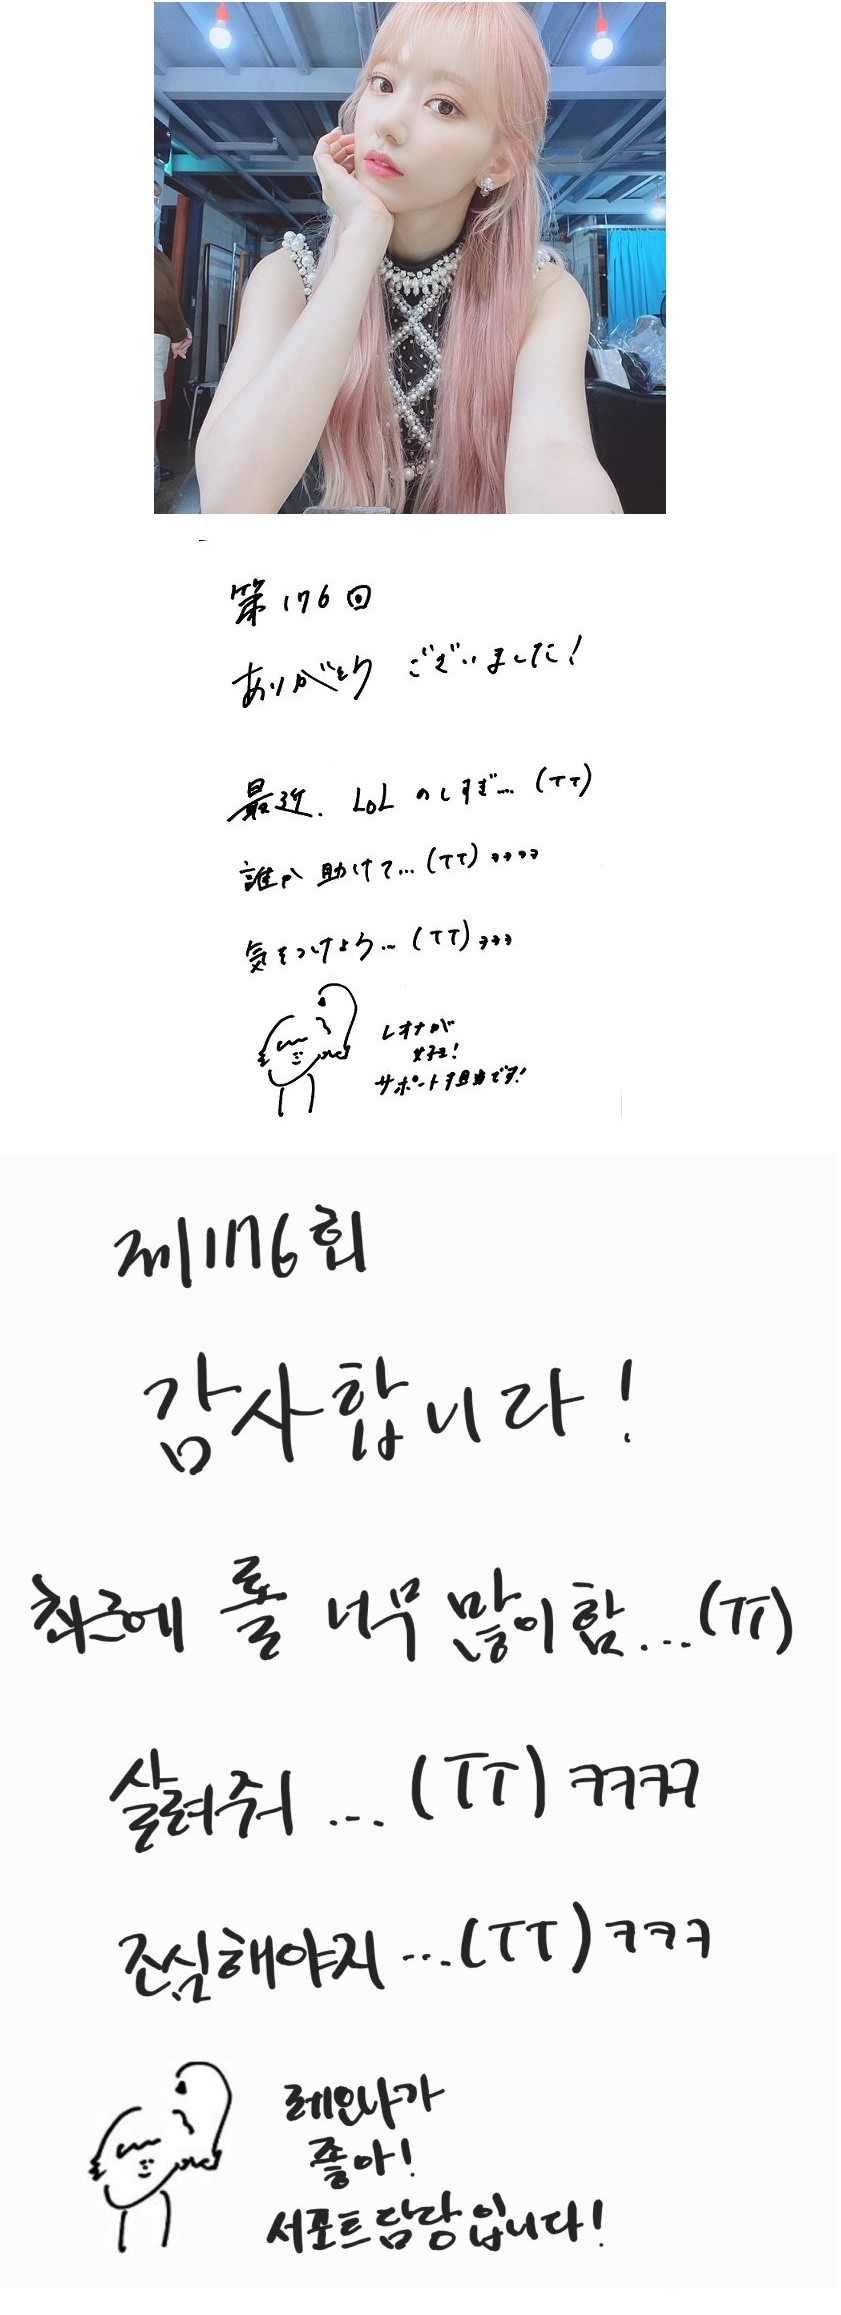 第176回
ありがとうございました!
最近. LoLのしすぎ…. (TT)
誰か助けて… (TT) ㅋㅋㅋㅋ
気をつけよう… (TT) ㅋㅋㅋ
レオナが
好き!
サポート担当です!
제176회
감사합니다!
최근에 롤 너무 많이 함... (TT)
살려줘 ... (TT) ㅋㅋㅋㅋ
조심해야지 ... (TT) ㅋㅋㅋ
레오나가
좋아!
서포트 담당입니다!